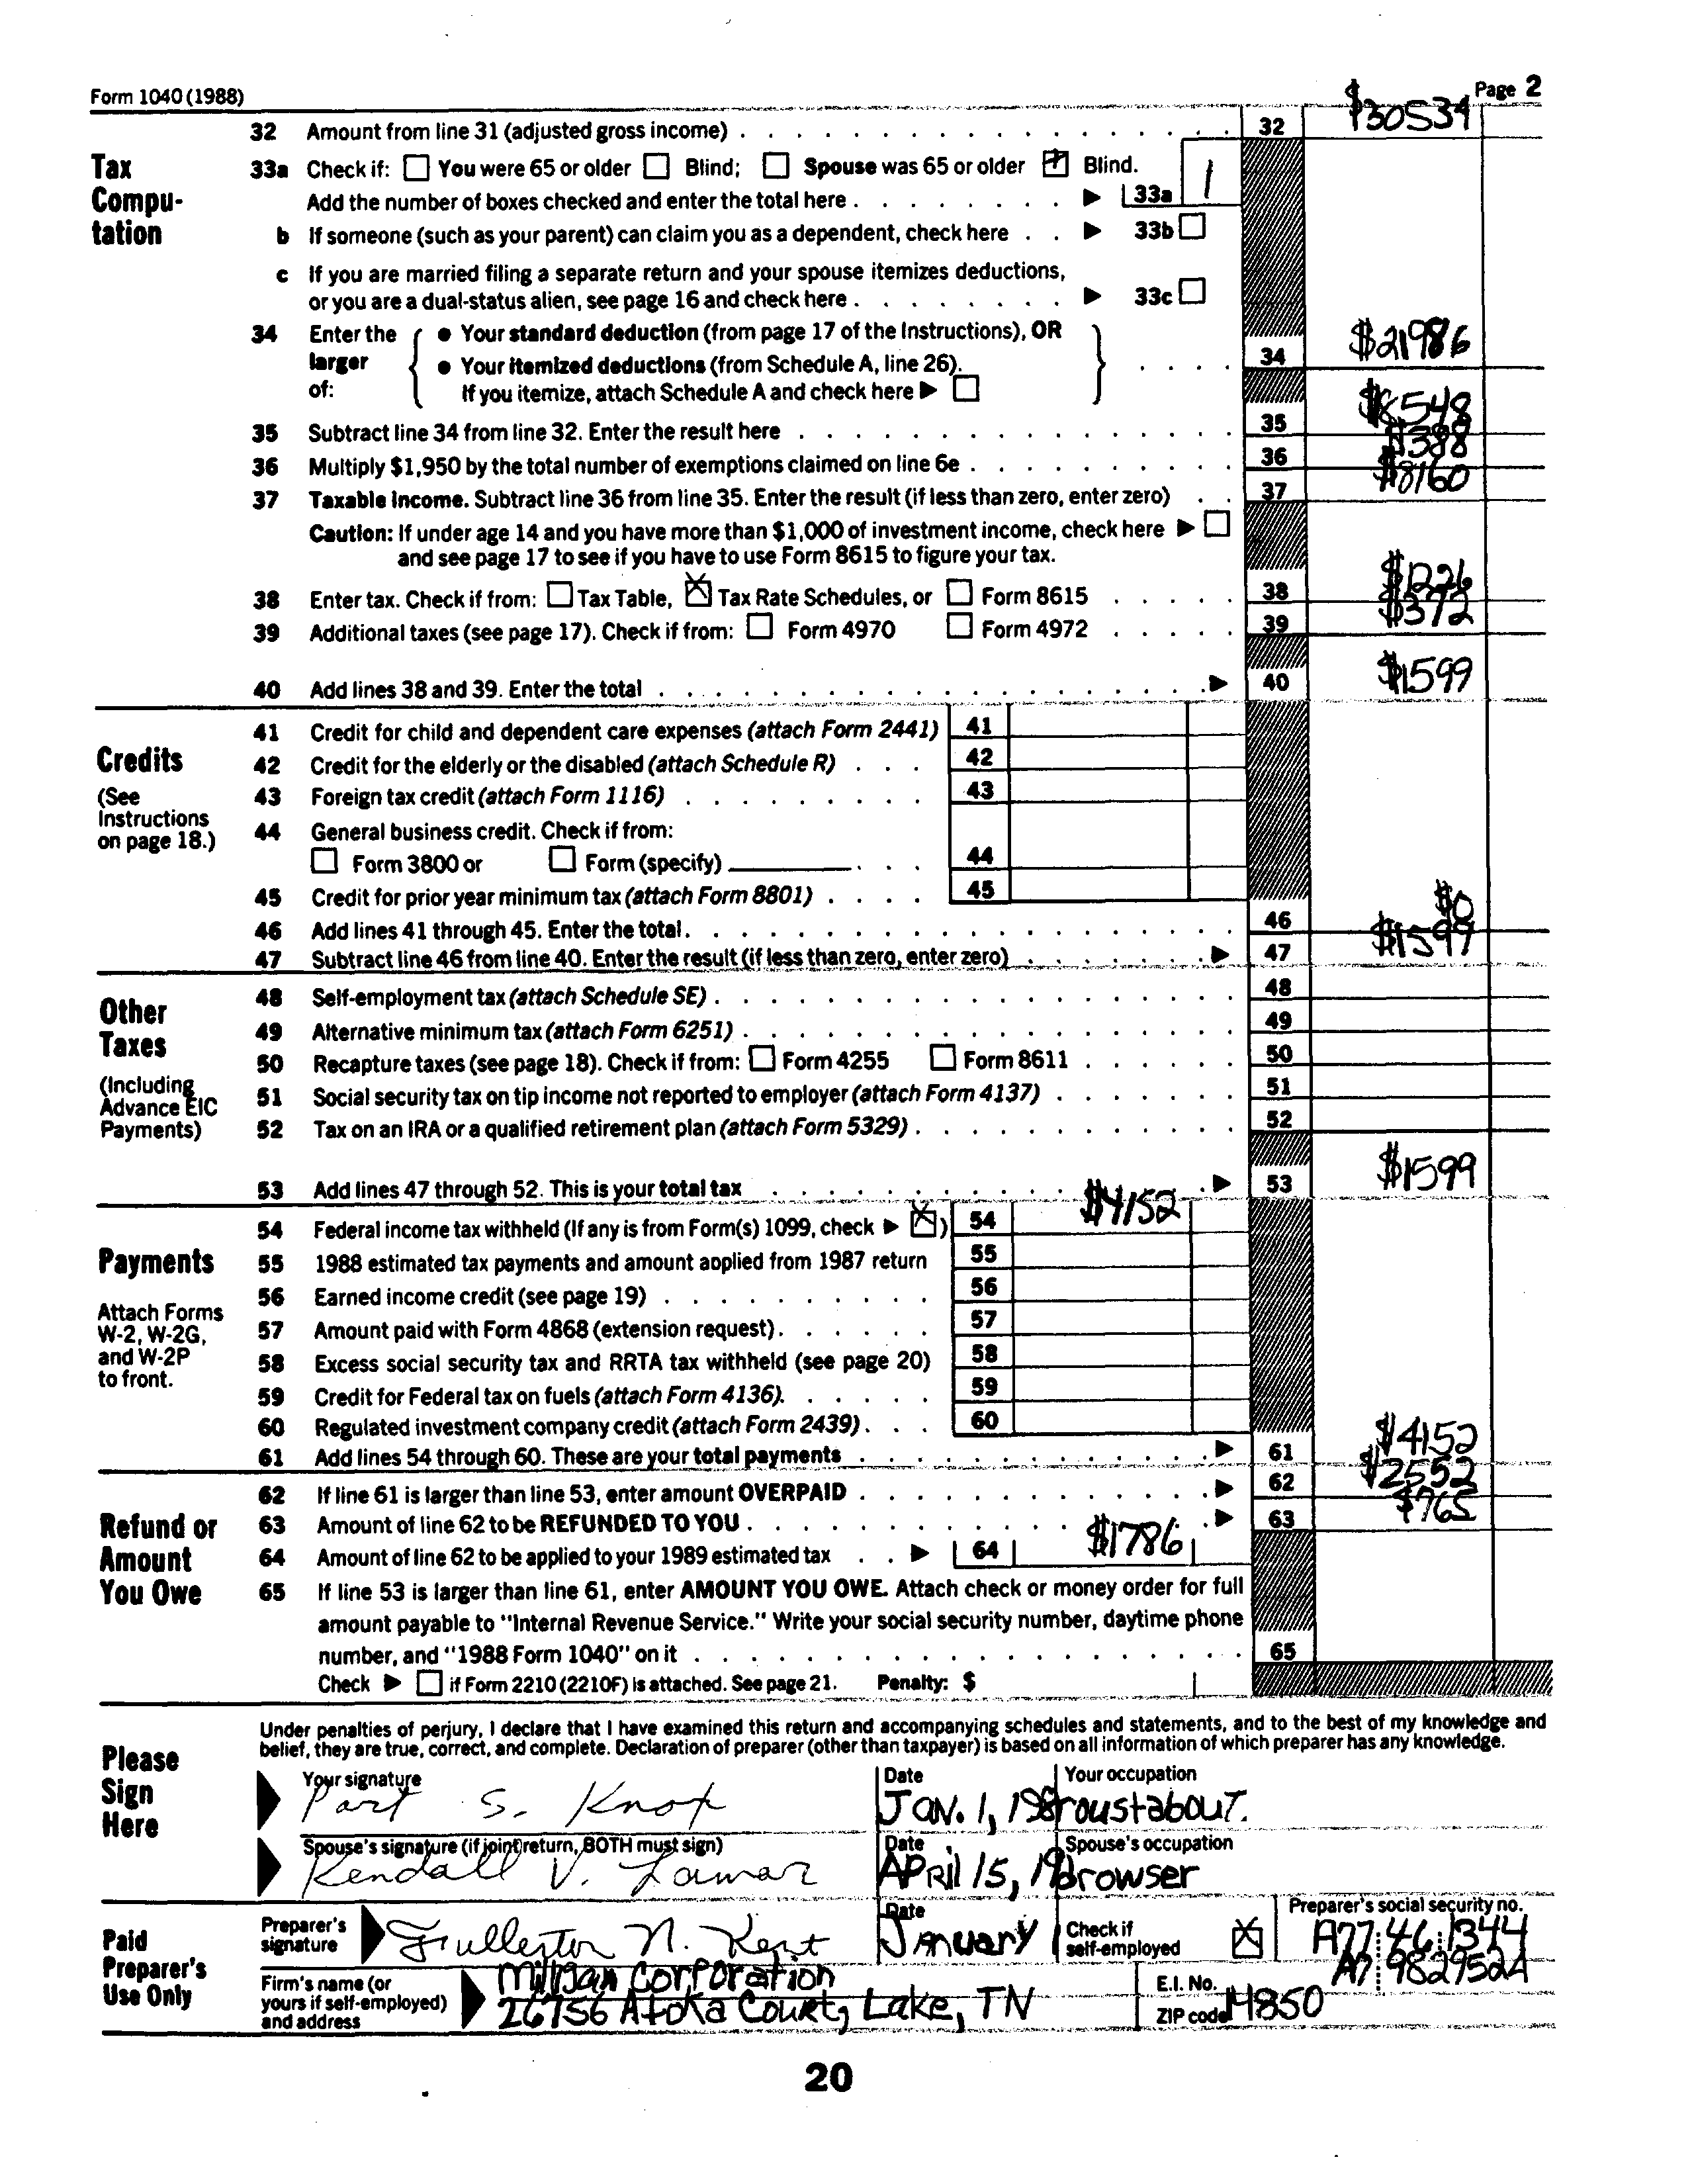 Form 1040 (1988) Page 2
Tax Computation
32 Amount from line 31 (adjusted gross income) 32 $30534
33a Check if: You were 65 or older Blind; Spouse was 65 or older Blind.
Add the number of boxes checked and enter the total here 33a 1
b If someone (such as your parent) can claim you as a dependent, check here 33b
c If you are married filing a separate return and your spouse itemizes deductions,
or you are a dual-status alien, see page 16 and check here 33c
34 Enter the larger of: • Your standard deduction (from page 17 of the Instructions), OR
• Your itemized deductions (from Schedule A, line 26).
If you itemize, attach Schedule A and check here 34 $21986
35 Subtract line 34 from line 32. Enter the result here 35 $8548
36 Multiply $1,950 by the total number of exemptions claimed on line 6e 36 $388
37 Taxable income. Subtract line 36 from line 35. Enter the result (if less than zero, enter zero) 37 $8160
Caution: If under age 14 and you have more than $1,000 of investment income, check here
and see page 17 to see if you have to use Form 8615 to figure your tax.
38 Enter tax. Check if from: Tax Table, Tax Rate Schedules, or Form 8615 38 $1226
39 Additional taxes (see page 17). Check if from: Form 4970 Form 4972 39 $372
40 Add lines 38 and 39. Enter the total 40 $1599
Credits
(See Instructions on page 18.)
41 Credit for child and dependent care expenses (attach Form 2441) 41
42 Credit for the elderly or the disabled (attach Schedule R) 42
43 Foreign tax credit (attach Form 1116) 43
44 General business credit. Check if from:
Form 3800 or Form (specify) 44
45 Credit for prior year minimum tax (attach Form 8801) 45
46 Add lines 41 through 45. Enter the total 46 $0
47 Subtract line 46 from line 40. Enter the result (if less than zero, enter zero) 47 $1599
Other Taxes
(Including Advance EIC Payments)
48 Self-employment tax (attach Schedule SE) 48
49 Alternative minimum tax (attach Form 6251) 49
50 Recapture taxes (see page 18). Check if from: Form 4255 Form 8611 50
51 Social security tax on tip income not reported to employer (attach Form 4137) 51
52 Tax on an IRA or a qualified retirement plan (attach Form 5329) 52
53 Add lines 47 through 52. This is your total tax 53 $1599
Payments
Attach Forms W-2, W-2G, and W-2P to front.
54 Federal income tax withheld (If any is from Form(s) 1099, check ) 54 $4152
55 1988 estimated tax payments and amount applied from 1987 return 55
56 Earned income credit (see page 19) 56
57 Amount paid with Form 4868 (extension request) 57
58 Excess social security tax and RRTA tax withheld (see page 20) 58
59 Credit for Federal tax on fuels (attach Form 4136) 59
60 Regulated investment company credit (attach Form 2439) 60
61 Add lines 54 through 60. These are your total payments 61 $4152
Refund or Amount You Owe
62 If line 61 is larger than line 53, enter amount OVERPAID 62 $2552
63 Amount of line 62 to be REFUNDED TO YOU 63 $765
64 Amount of line 62 to be applied to your 1989 estimated tax 64 $1786
65 If line 53 is larger than line 61, enter AMOUNT YOU OWE. Attach check or money order for full
amount payable to "Internal Revenue Service." Write your social security number, daytime phone
number, and "1988 Form 1040" on it 65
Check if Form 2210 (2210F) is attached. See page 21. Penalty: $
Please Sign Here
Under penalties of perjury, I declare that I have examined this return and accompanying schedules and statements, and to the best of my knowledge and
belief, they are true, correct, and complete. Declaration of preparer (other than taxpayer) is based on all information of which preparer has any knowledge.
Your signature Date Your occupation
Part S. Knox Jan. 1, roustabout.
Spouse's signature (if joint return, BOTH must sign) Date Spouse's occupation
Kendall V. Lamar April 15, browser
Paid Preparer's Use Only
Preparer's signature Fullerton N. Kent Date January Check if self-employed Preparer's social security no. A77 46 1344
Firm's name (or yours if self-employed) and address Milligan Corporation E.I. No. A7 982952A
26756 Atoka Court, Lake, TN ZIP code 14850
20